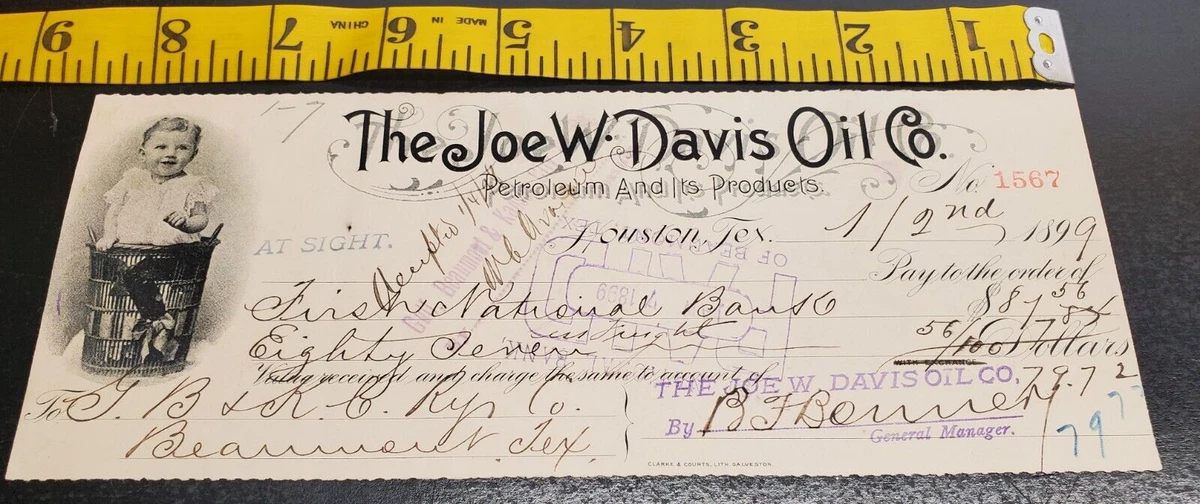 9 8 7 6 5 4 3 2 1
MADE IN CHINA
1-7
The Joe W. Davis Oil Co.
Petroleum And Its Products.
No 1567
Houston, Tex. 1/2nd 1899
AT SIGHT.
Pay to the order of
First National Bank $87 56
Eighty Seven 56/100 Dollars
WITH EXCHANGE
Value received and charge the same to account of
THE JOE W. DAVIS OIL CO. 79.72
To G. B & K. C. Ry. Co.
By B F Bonner
General Manager.
Beaumont, Tex.
79
CLARKE & COURTS, LITH. GALVESTON.
7 1899
PAID